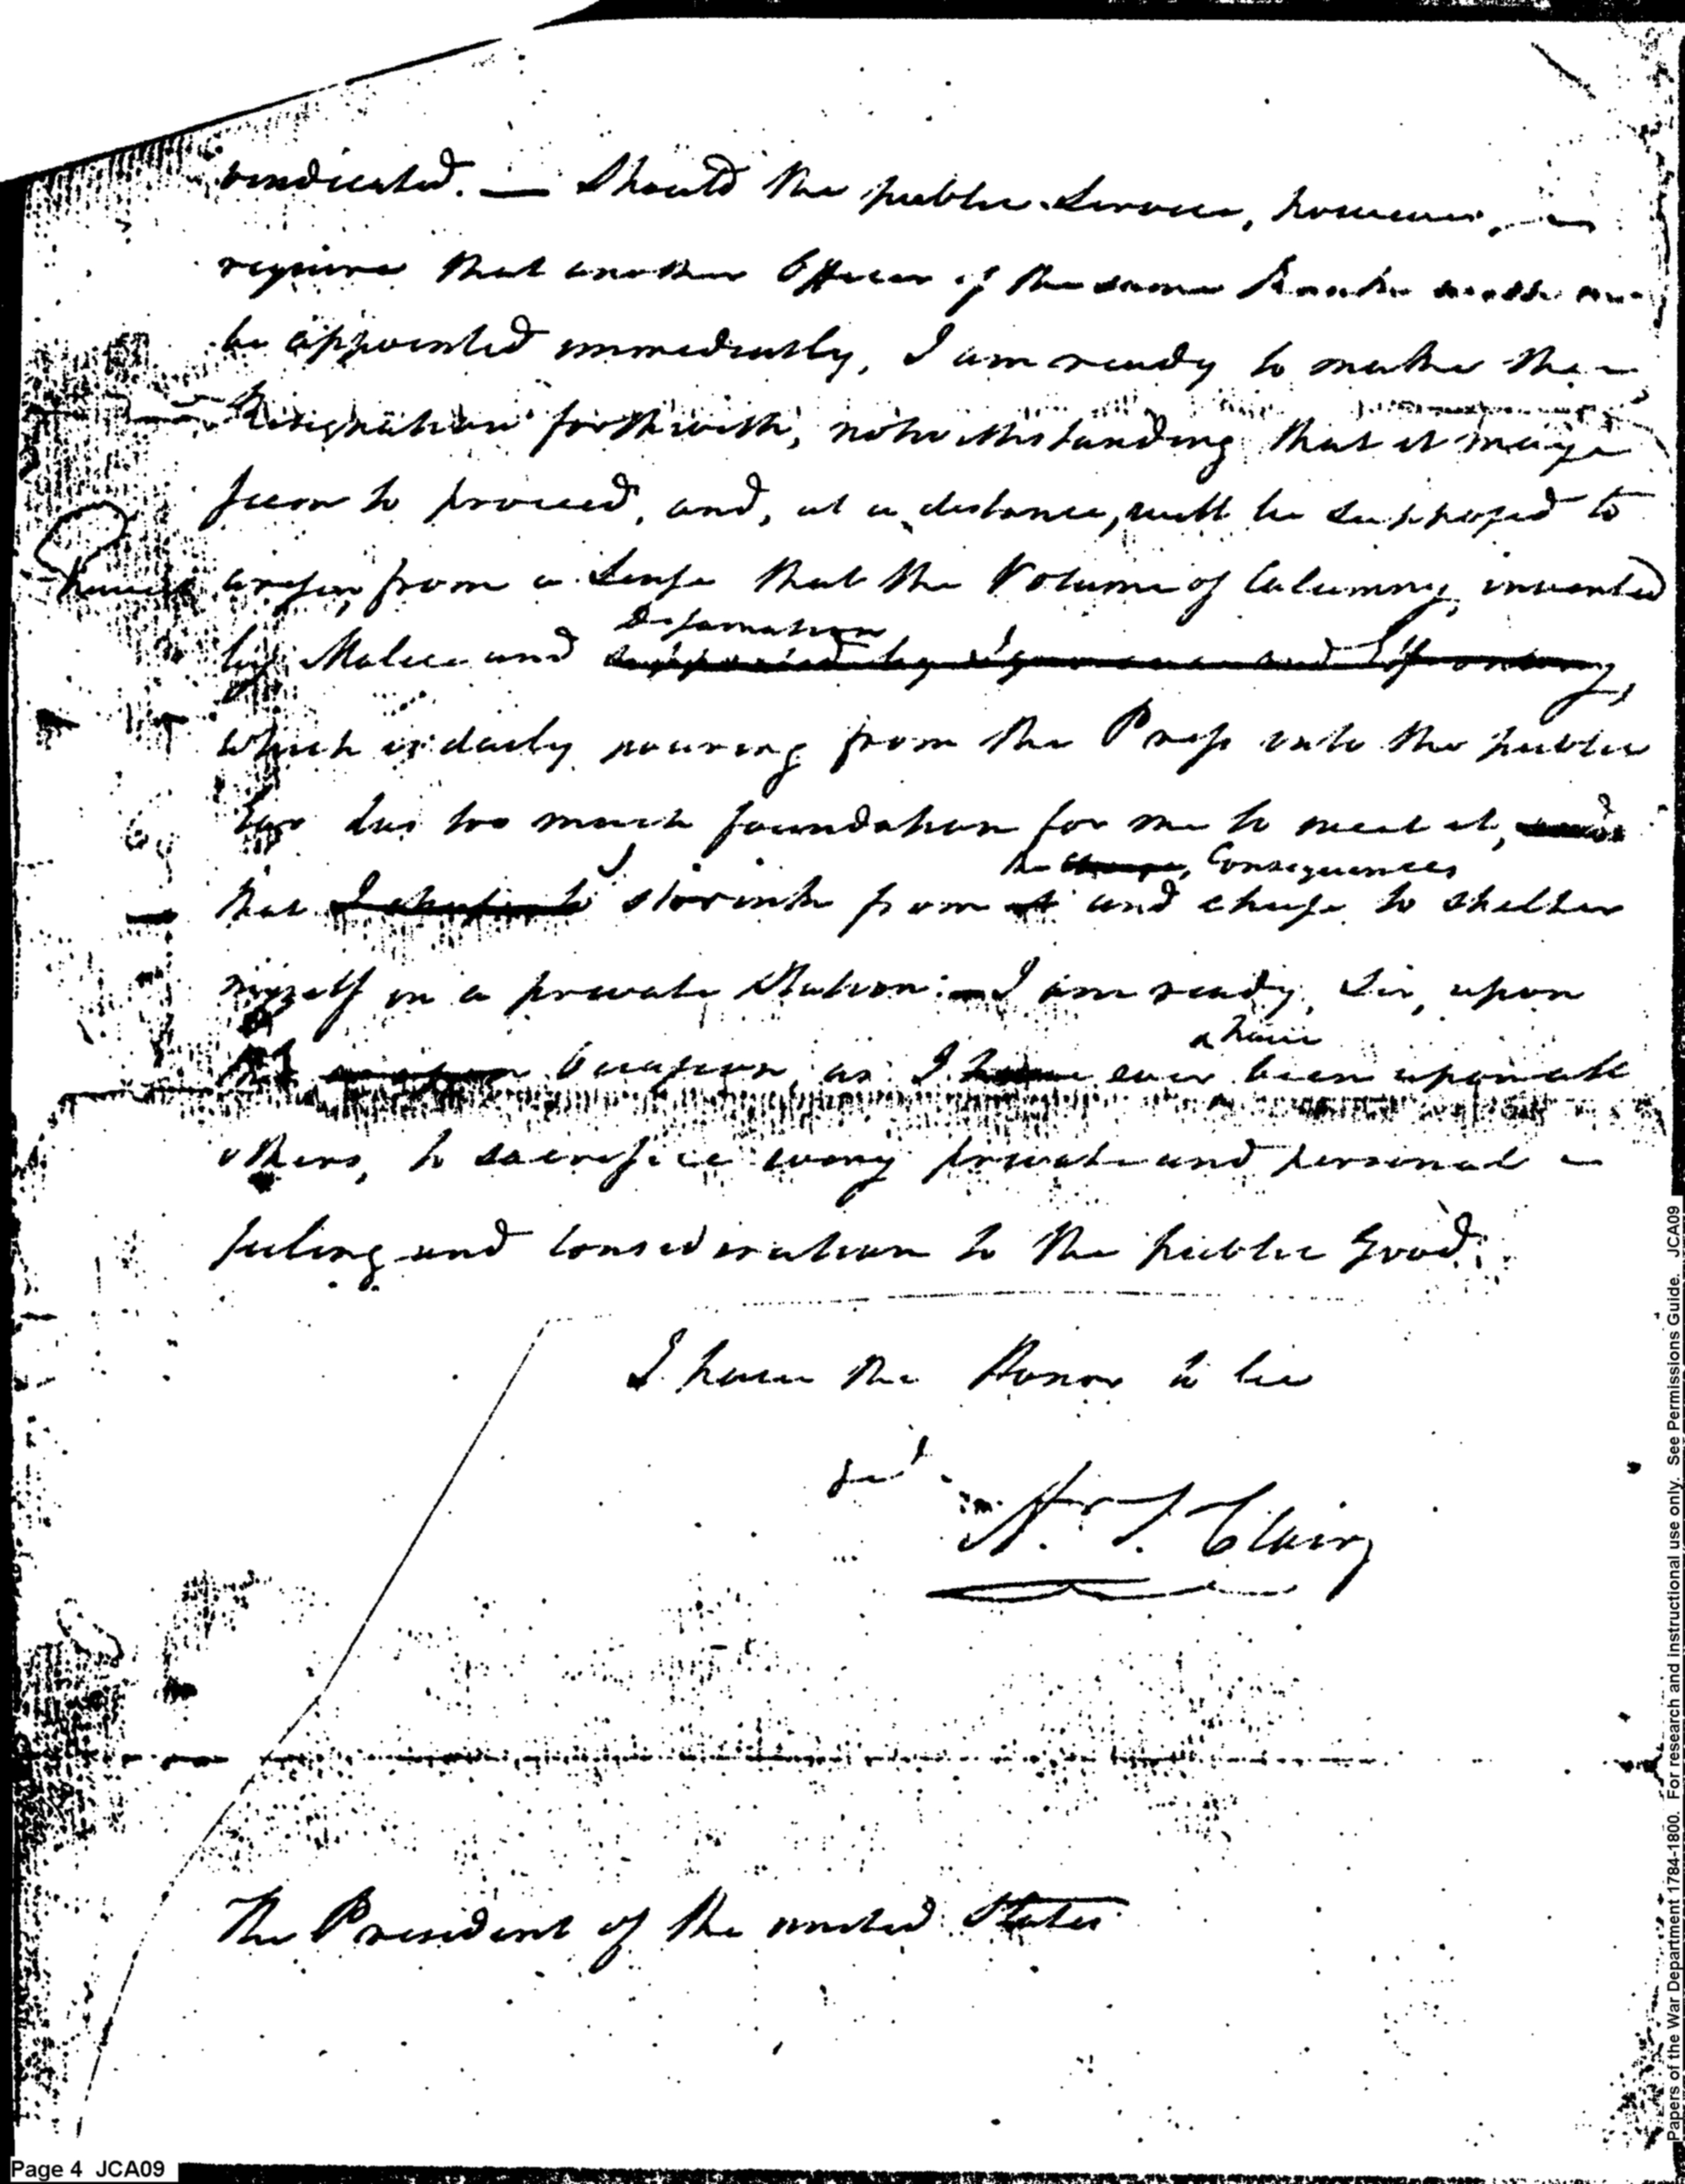 vindicated. — Should the public Service, however, —
require that another Officer of the same Rank
be appointed immediately, I am ready to make the —
Resignation forthwith, notwithstanding that it may
seem to proceed, and, at a distance, will be supposed to
have arisen, from a Sense that the Volume of Calumny, invented
Defamation
by Malice and supported by Ignorance and Effrontery,
which is daily pouring from the Press into the public
has too much foundation for me to meet it,
the Consequences
that I shrink from it and chuse to shelter
myself in a private Station: — I am ready, Sir, upon
have
Occasion, as I have ever been upon all
others, to sacrifice every private and personal —
feeling and consideration to the public Good.
I have the Honor to be
Ar. St. Clair
The President of the united States
Page 4 JCA09
Papers of the War Department 1784-1800. For research and instructional use only. See Permissions Guide. JCA09